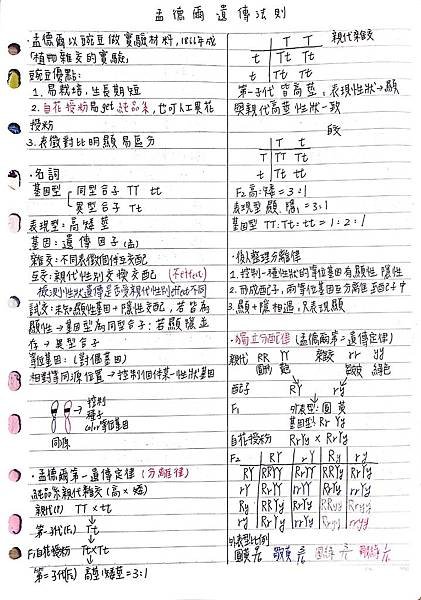 孟德爾遺傳法則
·孟德爾以豌豆做實驗材料,1866年成
「植物雜交的實驗」
豌豆優點:
1.易栽培,生長期短
2.自花授粉易get純品系,也可人工異花
授粉
3.表徵對比明顯易區分
·名詞
基因型 同型合子 TT tt
異型合子 Tt
表現型:高矮莖
基因:遺傳因子
雜交:不同表徵個体互交配
互交:親代性別交換交配 (不effect)
檢測性狀遺傳是否受親代性別effect不同
試交:未知顯性基因+隱性交配,若皆為
顯性→基因型為同型合子;若顯隱並
存→異型合子
等位基因:(對偶基因)
相對等同源位置→控制個体某一性狀基因
控制
種子
color等位基因
同源
·孟德爾第一遺傳定律(分離律)
純品系親代雜交(高×矮)
親代(P) TT × tt
第一子代(F1) Tt
F1自花授粉 Tt×Tt
第二子代(F2) 高莖:矮莖=3:1
T T 親代雜交
t Tt Tt
t Tt Tt
第一子代皆高莖,表現性狀→顯
與親代高莖性狀一致
T t
T TT Tt
t Tt tt
F2高:矮=3:1
表現型 顯:隱=3:1
基因型 TT:Tt:tt=1:2:1
·後人整理分離律
1.控制一種性狀的等位基因有顯性、隱性
2.形成配子,兩等位基因互分離至配子中
3.顯+隱相遇,只表現顯
·獨立分配律(孟德爾第二遺傳定律)
親代 RR YY 雜交 rr yy
圓形 黃 皺皮 綠色
配子 RY ry
F1 外表型:圓黃
基因型:Rr Yy
自花授粉 RrYy × RrYy
F2 RY rY Ry ry
RY RRYY RrYY RRYy RrYy
rY RrYY rrYY RrYy rrYy
Ry RRYy RrYy RRyy Rryy
ry RrYy rrYy Rryy rryy
外表型比例